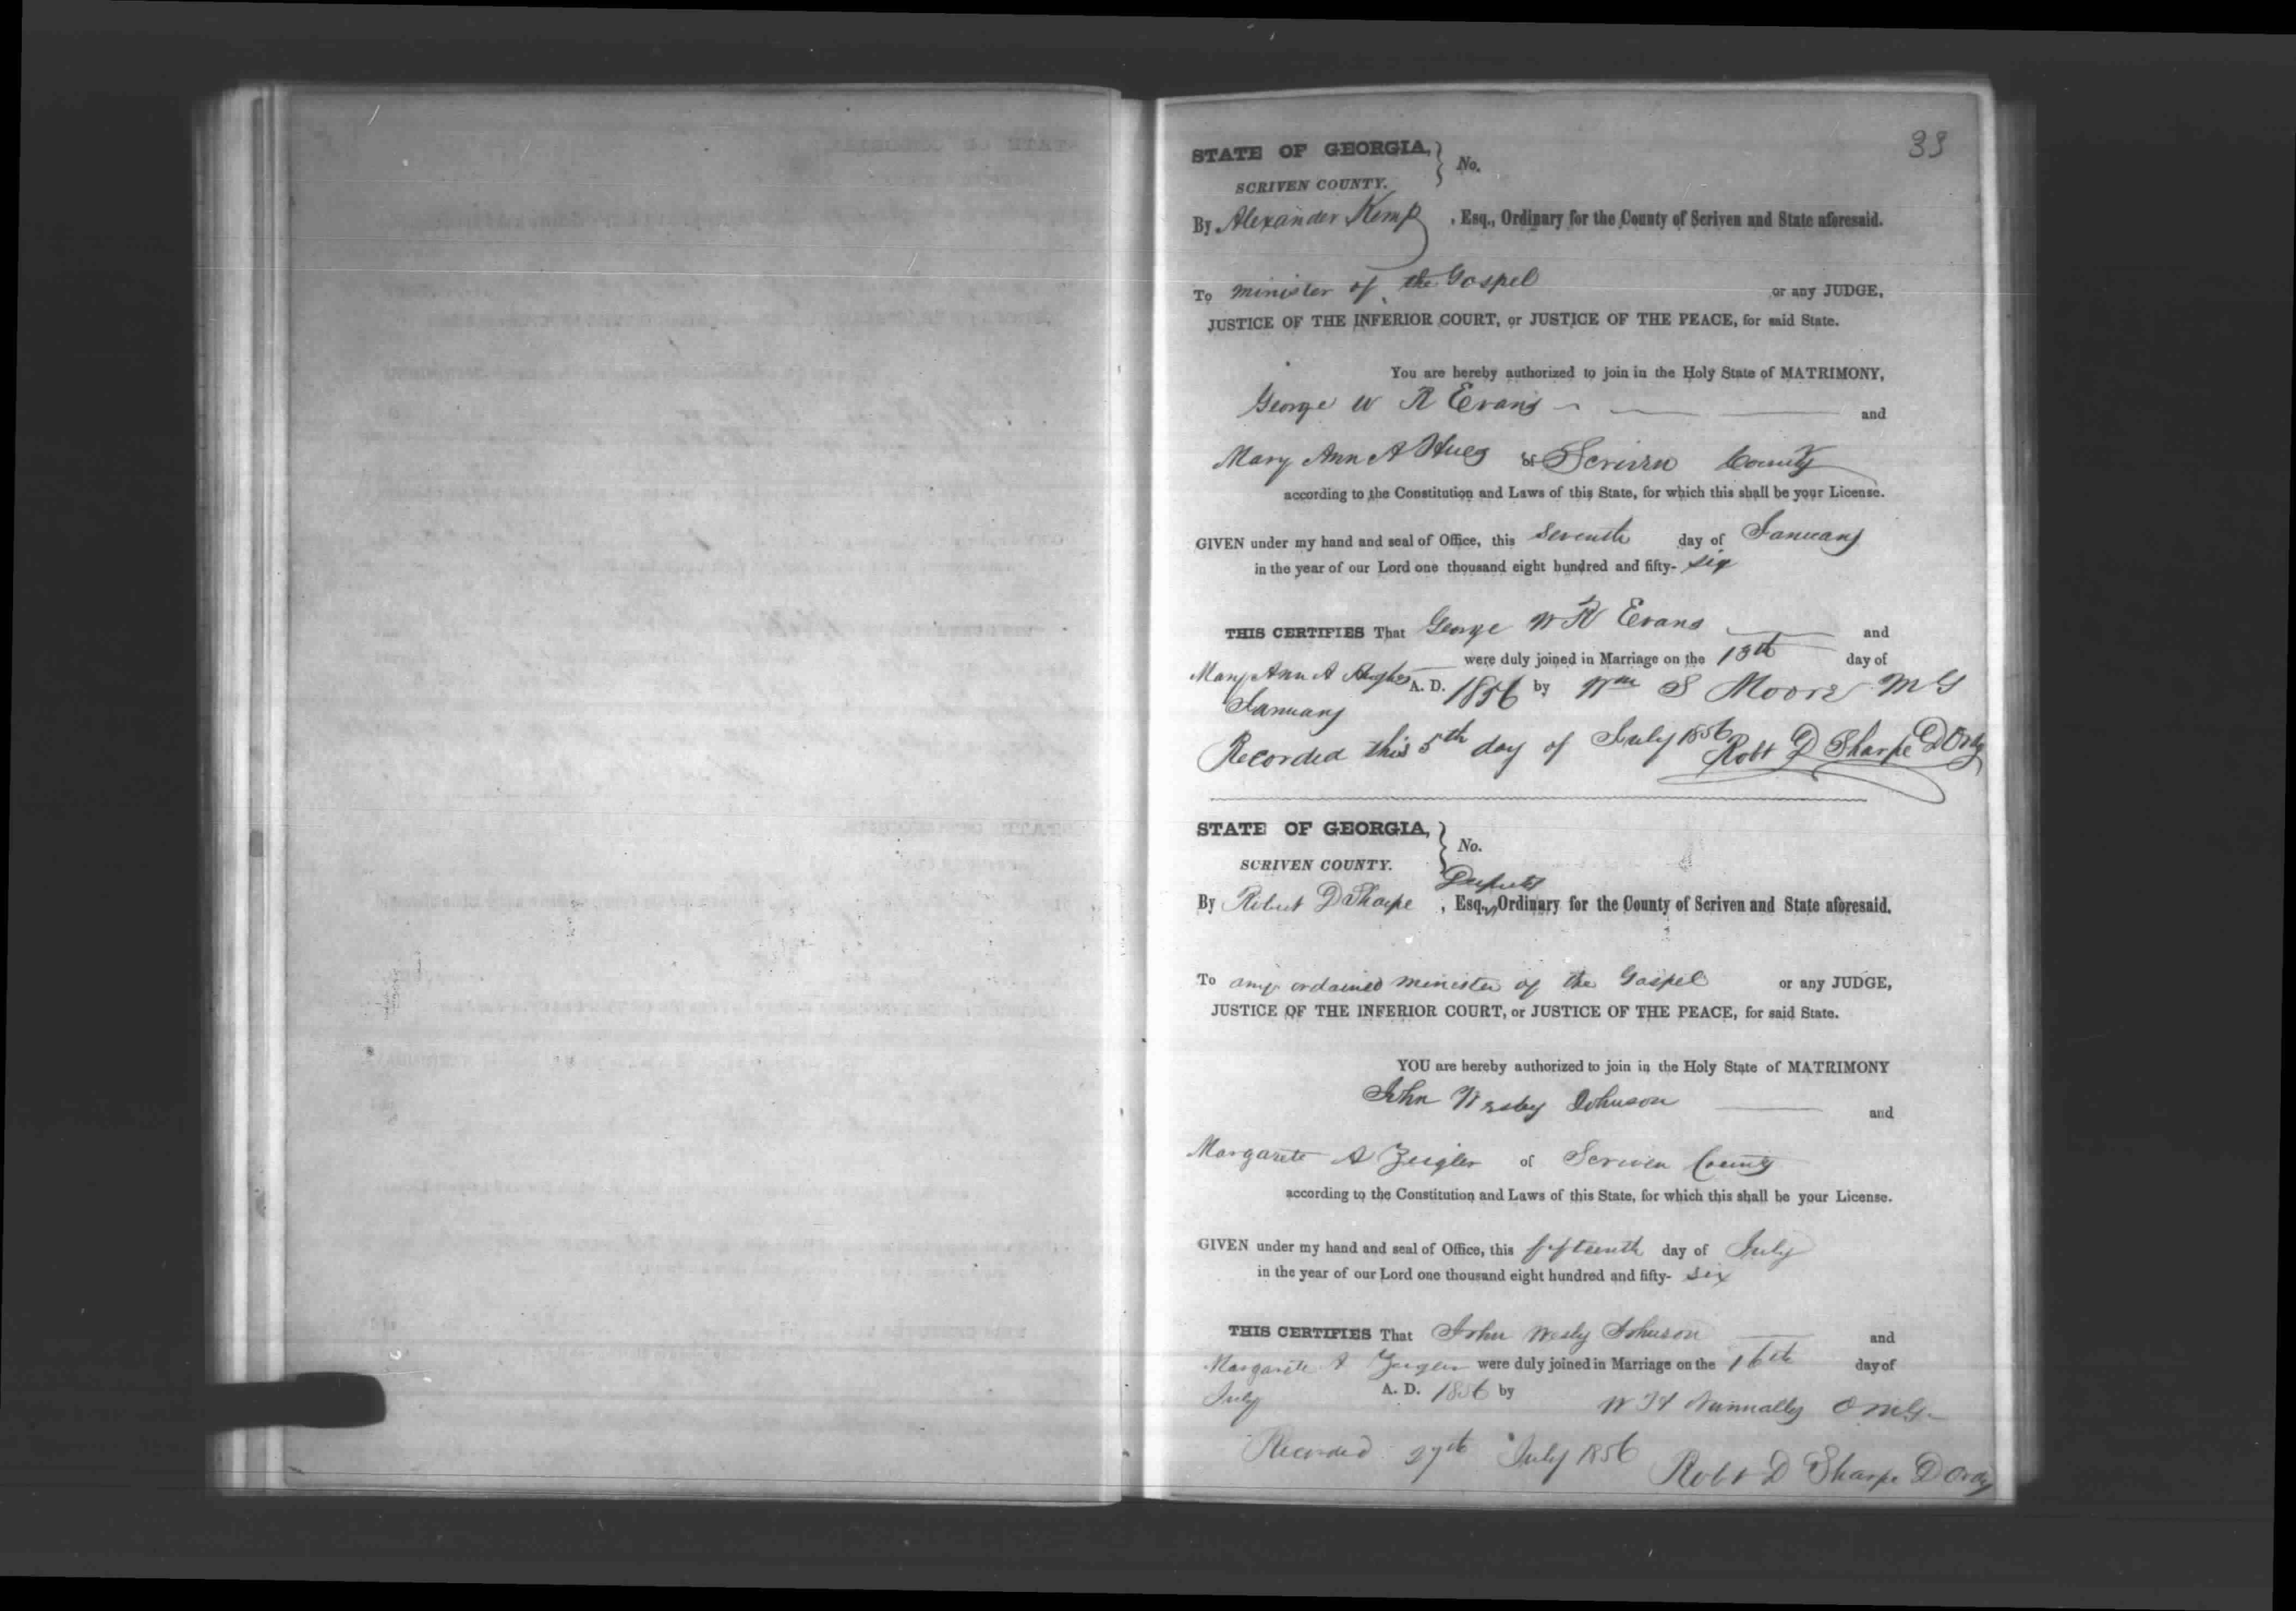 33
STATE OF GEORGIA, } No.
SCRIVEN COUNTY.
By Alexander Kemp , Esq., Ordinary for the County of Scriven and State aforesaid.
To minister of the Gospel or any JUDGE,
JUSTICE OF THE INFERIOR COURT, or JUSTICE OF THE PEACE, for said State.
You are hereby authorized to join in the Holy State of MATRIMONY,
George W R Evans and
Mary Ann A Hues of Scriven County
according to the Constitution and Laws of this State, for which this shall be your License.
GIVEN under my hand and seal of Office, this Seventh day of January
in the year of our Lord one thousand eight hundred and fifty- six
THIS CERTIFIES That George W R Evans and
Mary Ann A Hughes were duly joined in Marriage on the 13th day of
January A. D. 1856 by Wm S Moore M G
Recorded this 5th day of July 1856 Robt D Sharpe D Ordy
STATE OF GEORGIA, } No.
SCRIVEN COUNTY.
Deputy
By Robert D Sharpe , Esq., Ordinary for the County of Scriven and State aforesaid.
To any ordained minister of the Gospel or any JUDGE,
JUSTICE OF THE INFERIOR COURT, or JUSTICE OF THE PEACE, for said State.
YOU are hereby authorized to join in the Holy State of MATRIMONY
John Wesley Johnson and
Margarete A Zeigler of Scriven County
according to the Constitution and Laws of this State, for which this shall be your License.
GIVEN under my hand and seal of Office, this fifteenth day of July
in the year of our Lord one thousand eight hundred and fifty- six
THIS CERTIFIES That John Wesly Johnson and
Margarete A Zeigler were duly joined in Marriage on the 16th day of
July A. D. 1856 by W H Nunnally O M G
Recorded 27th July 1856 Robt D Sharpe D Ordy